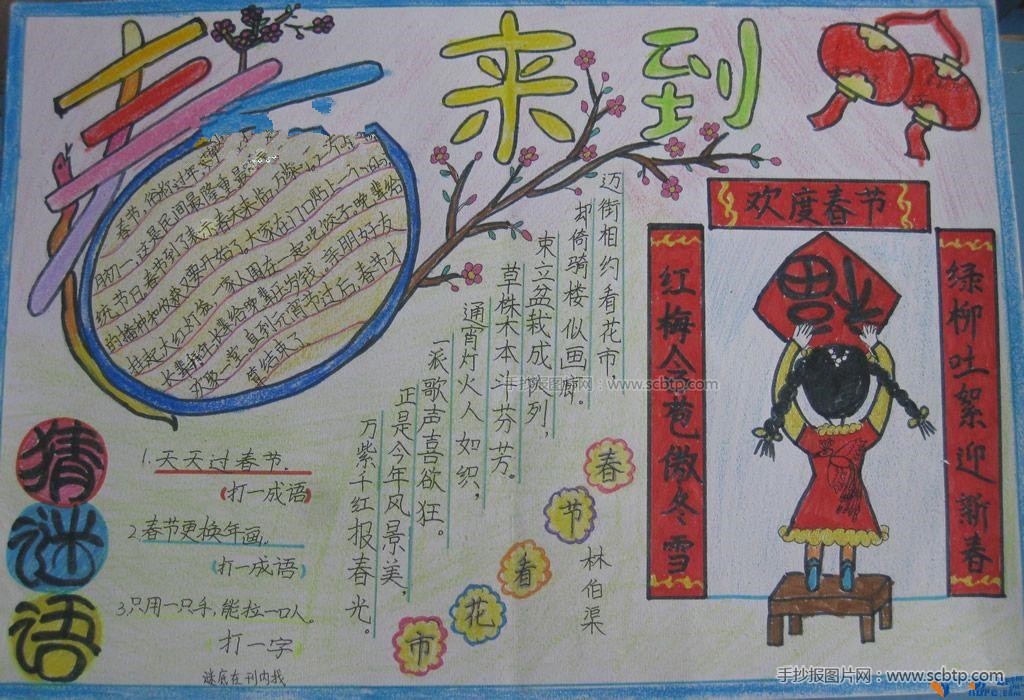 春来到
春节,俗称过年,
月初一,这是民间最隆重最
统节日。春节到了表示春天来临,万象
的播种和收获又要开始了。大家在门口贴上
挂起大红灯笼,一家人围在一起吃饺子。晚辈给
长辈拜年,长辈给晚辈压岁钱。亲朋好友
欢聚一堂。直到元宵节过后,春节才
算结束了
春节看花市
林伯渠
迈街相约看花市,
却倚骑楼似画廊。
束立盆栽成队列,
草株木本斗芬芳。
通宵灯火人如织,
一派歌声喜欲狂。
正是今年风景美,
万紫千红报春光。
欢度春节
红梅含苞傲冬雪
绿柳吐絮迎新春
福
猜谜语
1.天天过春节.
(打一成语)
2.春节更换年画。
(打一成语)
3.只用一只手,能拉一口人。
打一字
谜底在刊内找
手抄报图片网:www.scbtp.com
手抄报图片网:www.scbtp.com